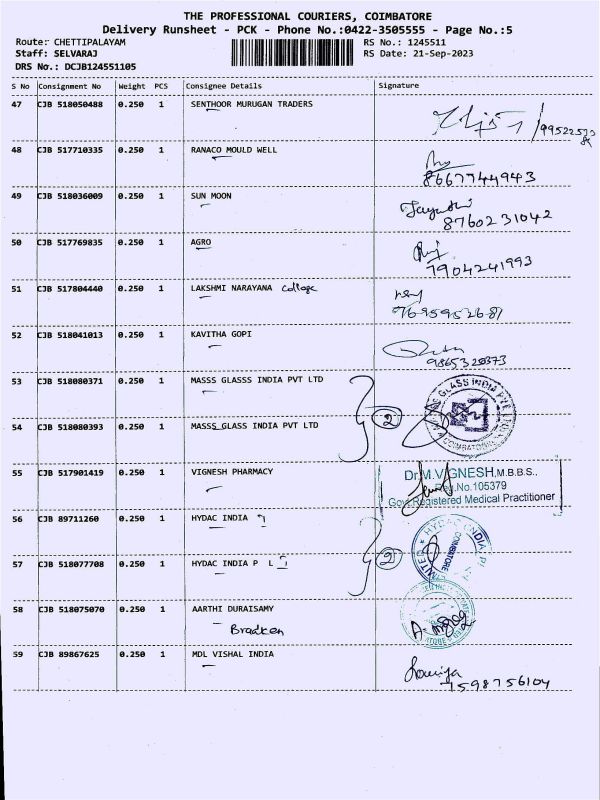 THE PROFESSIONAL COURIERS, COIMBATORE
Delivery Runsheet - PCK - Phone No.:0422-3505555 - Page No.:5
Route: CHETTIPALAYAM RS No.: 1245511
Staff: SELVARAJ RS Date: 21-Sep-2023
DRS No.: DCJB124551105
S No Consignment No Weight PCS Consignee Details Signature
47 CJB 518050488 0.250 1 SENTHOOR MURUGAN TRADERS
48 CJB 517710335 0.250 1 RANACO MOULD WELL
8667744943
49 CJB 518036009 0.250 1 SUN MOON
8760231042
50 CJB 517769835 0.250 1 AGRO
7904241993
51 CJB 517804440 0.250 1 LAKSHMI NARAYANA College
7695952687
52 CJB 518041013 0.250 1 KAVITHA GOPI
9865320373
53 CJB 518080371 0.250 1 MASSS GLASSS INDIA PVT LTD
2
54 CJB 518080393 0.250 1 MASSS GLASS INDIA PVT LTD
55 CJB 517901419 0.250 1 VIGNESH PHARMACY
Dr.M.VIGNESH,M.B.B.S..
Reg.No.105379
Govt.Registered Medical Practitioner
56 CJB 89711260 0.250 1 HYDAC INDIA
2
57 CJB 518077708 0.250 1 HYDAC INDIA P L
58 CJB 518075070 0.250 1 AARTHI DURAISAMY
Bradken
59 CJB 89867625 0.250 1 MDL VISHAL INDIA
7598756104